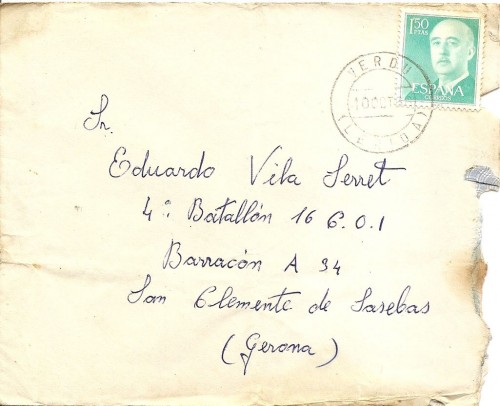 1.50
PTAS
ESPAÑA
CORREOS
VERDU
10 OCT
(LERIDA)
Sr.
Eduardo Vila Serret
4º Batallón 16 C.O.I
Barracón A 34
San Clemente de Sasebas
(Gerona)